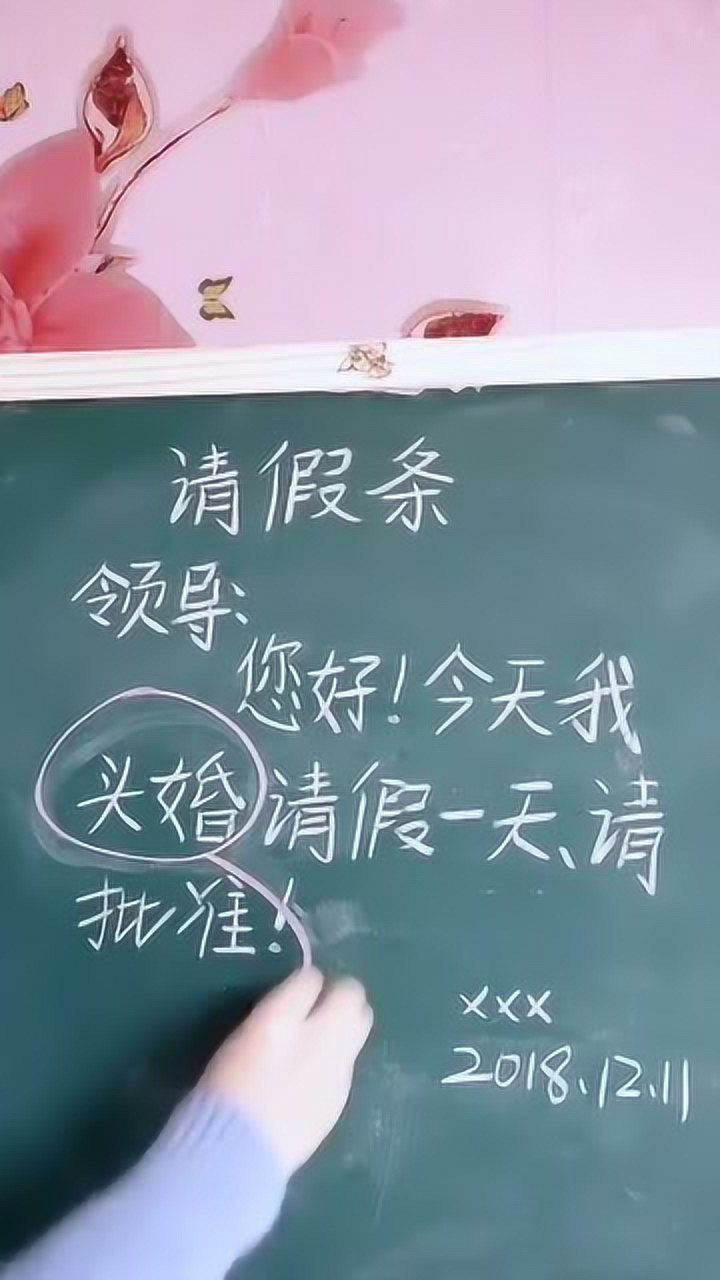 请假条
领导:
您好!今天我
头婚请假一天、请
批准!
xxx
2018.12.11